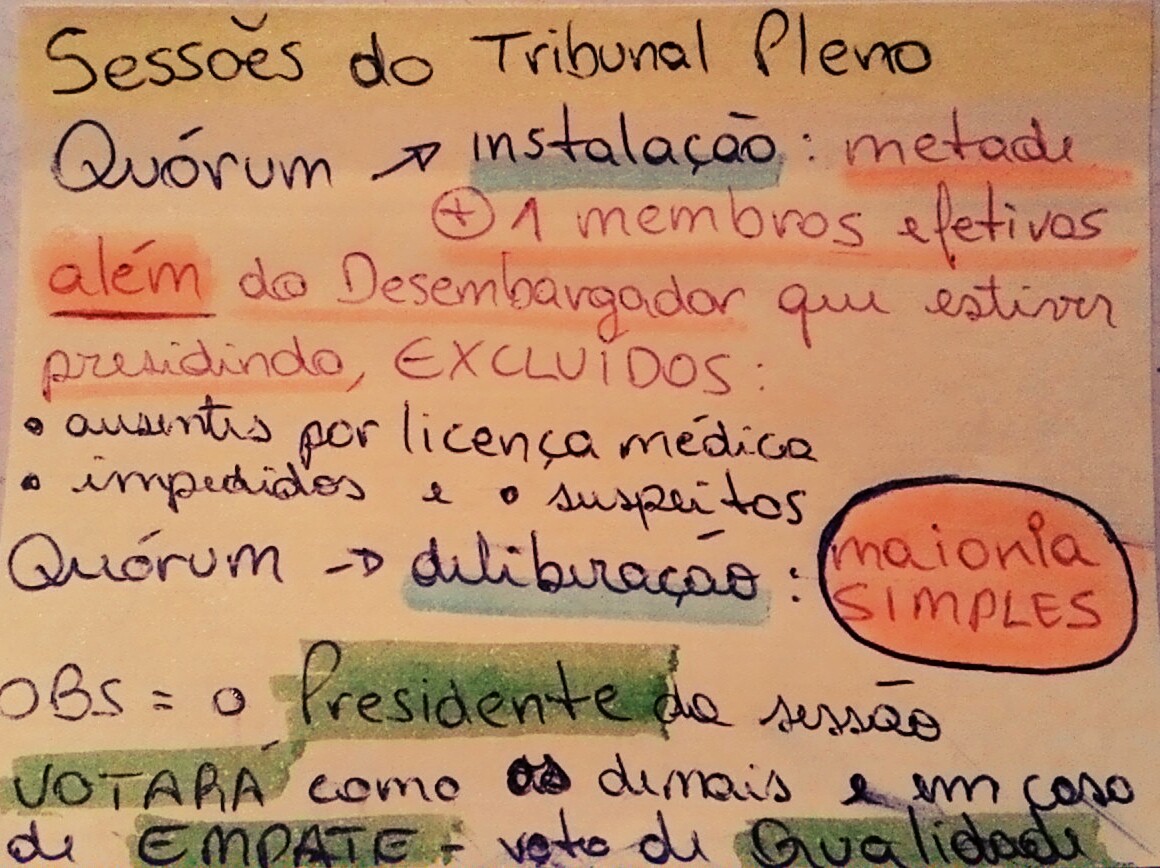 Sessões do Tribunal Pleno
Quórum → instalação: metade
⊕ 1 membros efetivos
além do Desembargador que estiver
presidindo, EXCLUÍDOS:
• ausentes por licença médica
• impedidos e • suspeitos
Quórum → deliberação: maioria SIMPLES
OBS = o Presidente da sessão
VOTARÁ como os demais e em caso
de EMPATE - voto de Qualidade